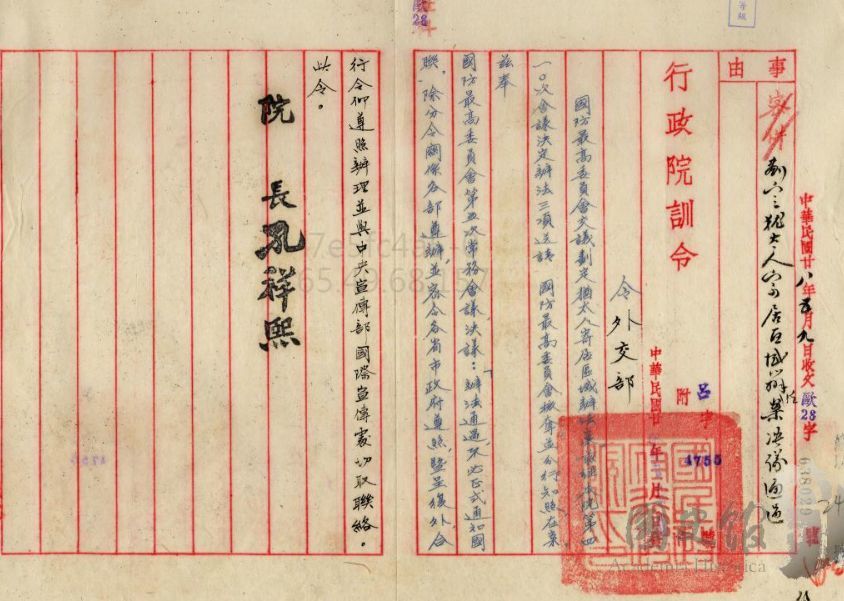 事由
密件
劃定猶太人寄居區域辦法案決議通過
中華民國廿八年五月九日收文歐28字
638029
行政院訓令
呂字
附
4755
號
中華民國廿年月日
令外交部
國防最高委員會交議劃定猶太人寄居區域辦法案經提本院第四
一〇次會議決定辦法三項送請 國防最高委員會核奪並分行知照在案
茲奉
國防最高委員會第五次常務會議決議:「辦法通過不必正式通知國
聯」除分令關係各部遵辦並咨令各省市政府遵照暨呈復外合
行令仰遵照辦理並與中央宣傳部國際宣傳處切取聯絡。
此令。
院長孔祥熙
歐
28
4755
國史館
Academia Historica
24